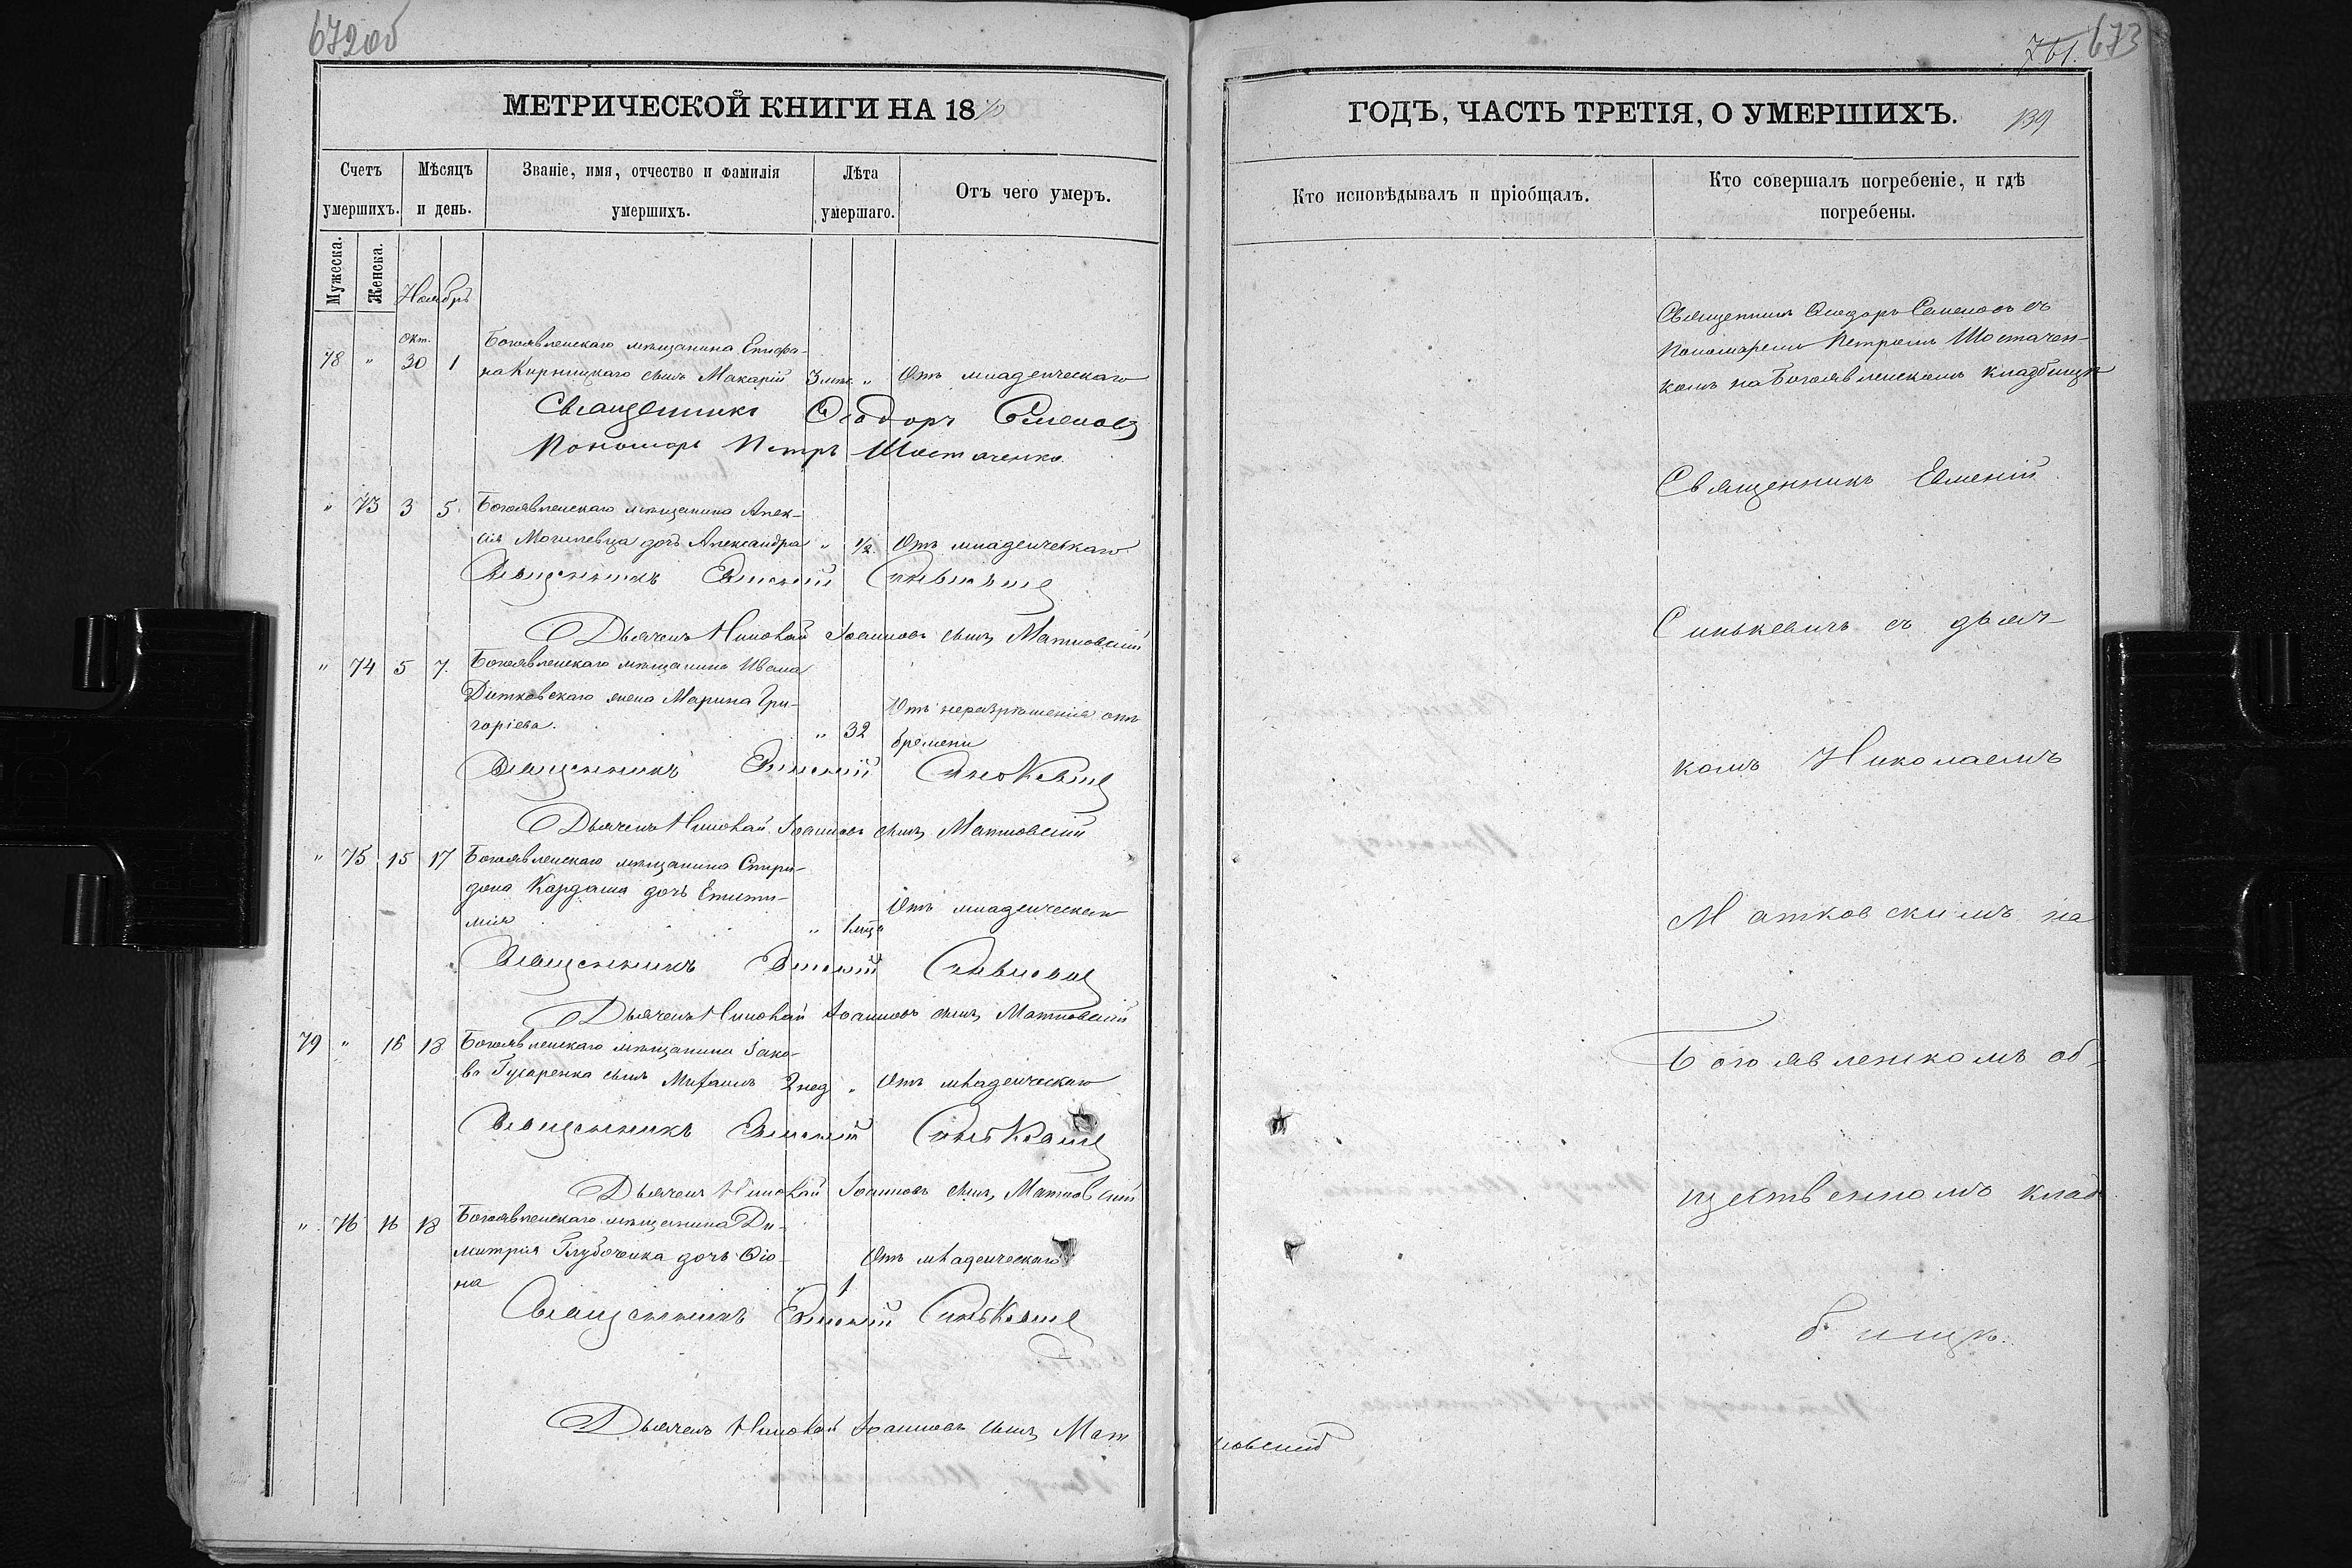 672об
МЕТРИЧЕСКОЙ КНИГИ НА 1870
Счетъ умершихъ.
Мѣсяцъ и день.
Званіе, имя, отчество и фамилія умершихъ.
Лѣта умершаго.
Отъ чего умеръ.
Мужеска.
Женска.
Ноябрь
окт.
78 " 30 1 Богоявленскаго мѣщанина Епифа-
на Кирницкаго сынъ Макарій 3 мѣс. " Отъ младенческаго
Священникъ Ѳеодоръ Семеновъ
Пономарь Петръ Шостаченко
" 73 3 5 Богоявленскаго мѣщанина Алек-
сія Могилевца дочь Александра " 1/2 Отъ младенческаго
Священникъ Евменій Синькевичъ
Дьячекъ Николай Іоанновъ сынъ Матковскій
" 74 5 7. Богоявленскаго мѣщанина Ивана
Дитковскаго жена Марина Гри-
горіева. " 32 Отъ неразрѣшенія отъ
бремени
Священникъ Евменій Синькевичъ
Дьячекъ Николай Іоанновъ сынъ Матковскій
" 75 15 17 Богоявленскаго мѣщанина Спири-
дона Кардаша дочь Еписти-
мія " 1 мца Отъ младенческаго
Священникъ Евменій Синькевичъ
Дьячекъ Николай Іоанновъ сынъ Матковскій
79 " 16 18 Богоявленскаго мѣщанина Іако-
ва сынъ Михаилъ 2 нед " Отъ младенческаго
Священникъ Евменій Синькевичъ
Дьячекъ Николай Іоанновъ сынъ Матковскій
" 76 16 18 Богоявленскаго мѣщанина Ди-
митрія Глубочика дочь Ѳіо-
на " 1 Отъ младенческаго
Священникъ Евменій Синькевичъ
Дьячекъ Николай Іоанновъ сынъ Мат
ковскій
761. 673
ГОДЪ, ЧАСТЬ ТРЕТІЯ, О УМЕРШИХЪ. 139
Кто исповѣдывалъ и пріобщалъ.
Кто совершалъ погребеніе, и гдѣ
погребены.
Священникъ Ѳеодоръ Семеновъ съ
Пономаремъ Петромъ Шостачен-
комъ на Богоявленскомъ кладбищѣ
Священникъ Евменій
Синькевичъ съ дьяч-
комъ Николаемъ
Матковскимъ на
Богоявленскомъ об-
щественномъ клад-
бищѣ.